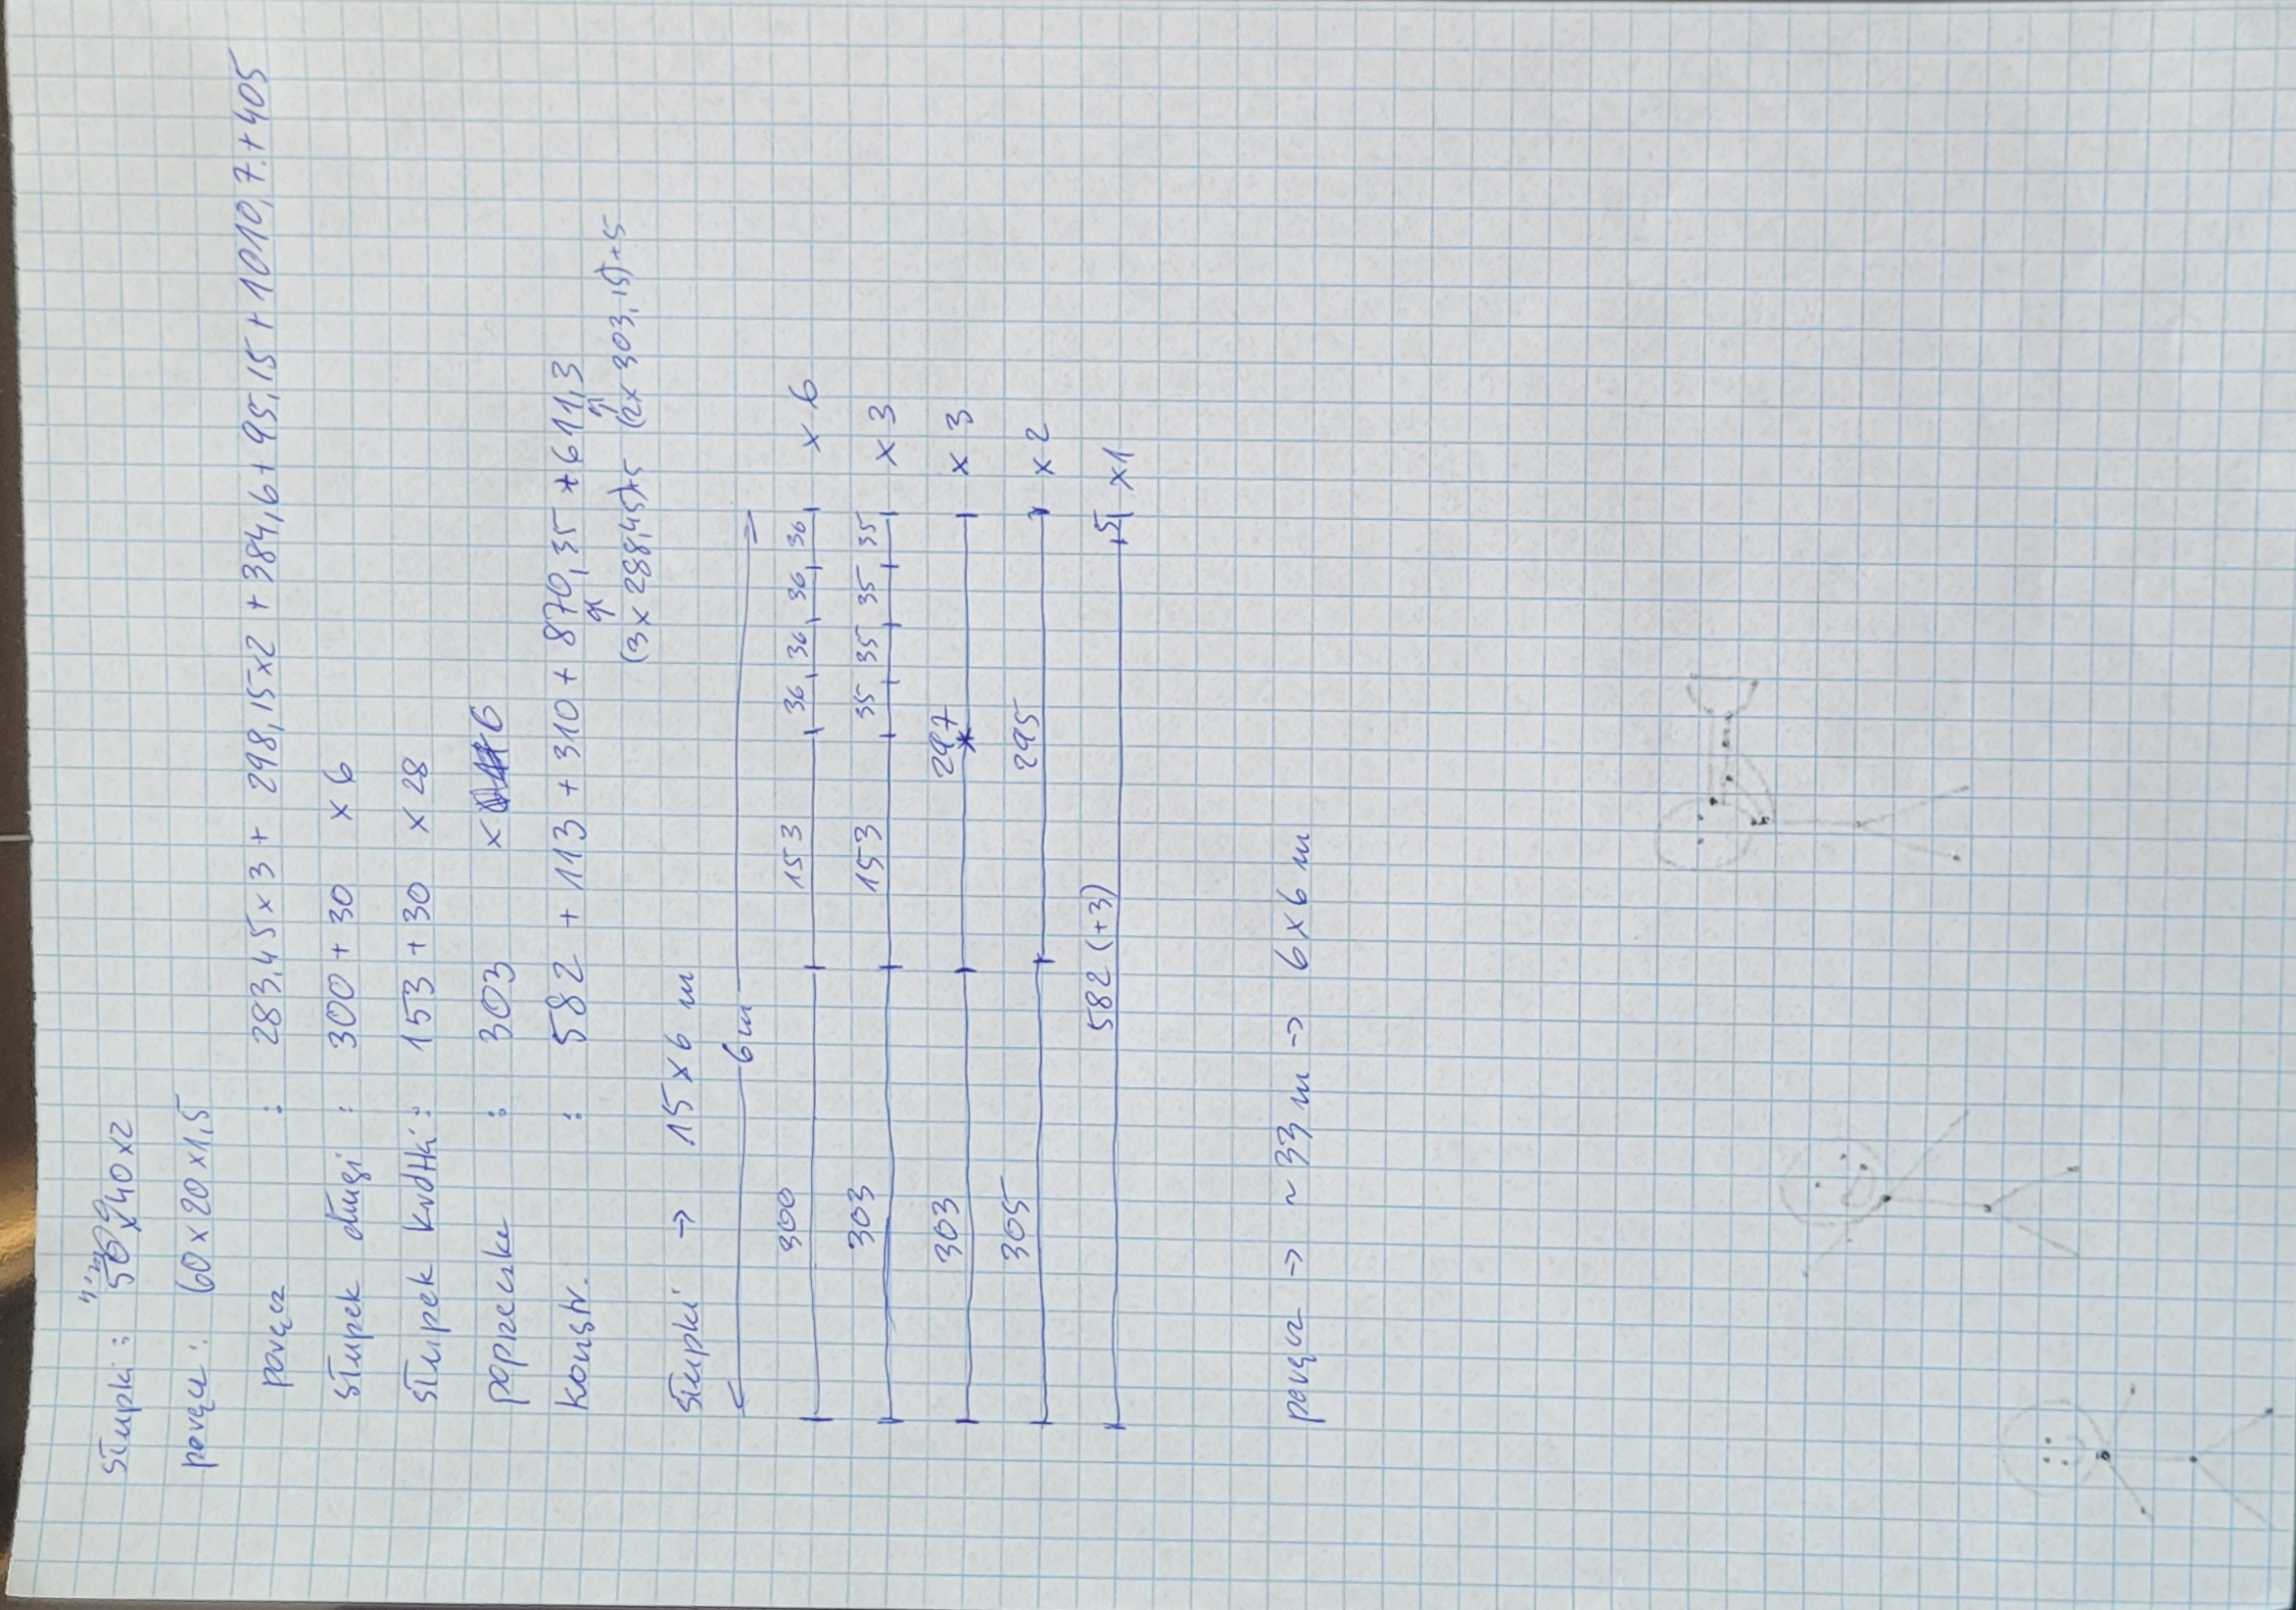 słupki : 50x40x2
poręcz : 60x20x1,5
poręcz : 283,45x3 + 298,15x2 + 384,6 + 95,15 + 1010,7 + 405
słupek długi : 300 + 30 x 6
słupek krótki : 153 + 30 x 28
poprzeczka : 303 x 6
konstr. : 582 + 113 + 310 + 870,35 + 611,3
(3x 288,45)+5 (2x 303,15)+5
słupki → 15x6 m
6m
300 153 36 36 36 36 x 6
303 153 35 35 35 35 x 3
303 297 x 3
305 295 x 2
582 (+3) 5 x1
poręcz → ~33 m → 6x6 m